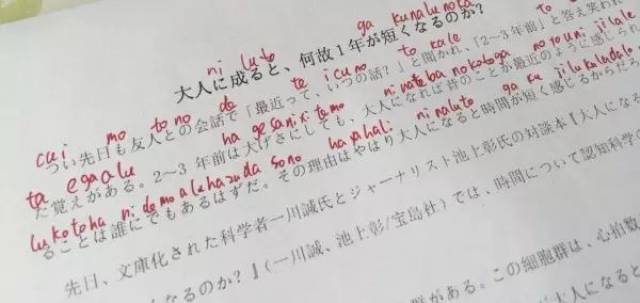 ni luto ga kunalunoka
大人に成ると、何故1年が短くなるのか?
cui mo tono de te icuno to kale to
つい先日も友人との会話で「最近って、いつの話?」と聞かれ、「2~3年前」と答え笑われ
ta egaalu ha gesanixitemo ninateba nokotoga noyouni jilale
た覚えがある。2~3 年前は大げさにしても、大人になれば昔のことが最近のように感じられ
lukotoha nidemoaluhazuda sono hayahali ninaluto ga ku jilukaladala
ることは誰にでもあるはずだ。その理由はやはり大人になると時間が短く感じるからだろ
先日、文庫化された科学者一川誠氏とジャーナリスト池上彰氏の対談本【大人になる
なるのか?】(一川誠、池上彰/宝島社)では、時間について認知科学
がある。この細胞群は、心拍数
大人になると